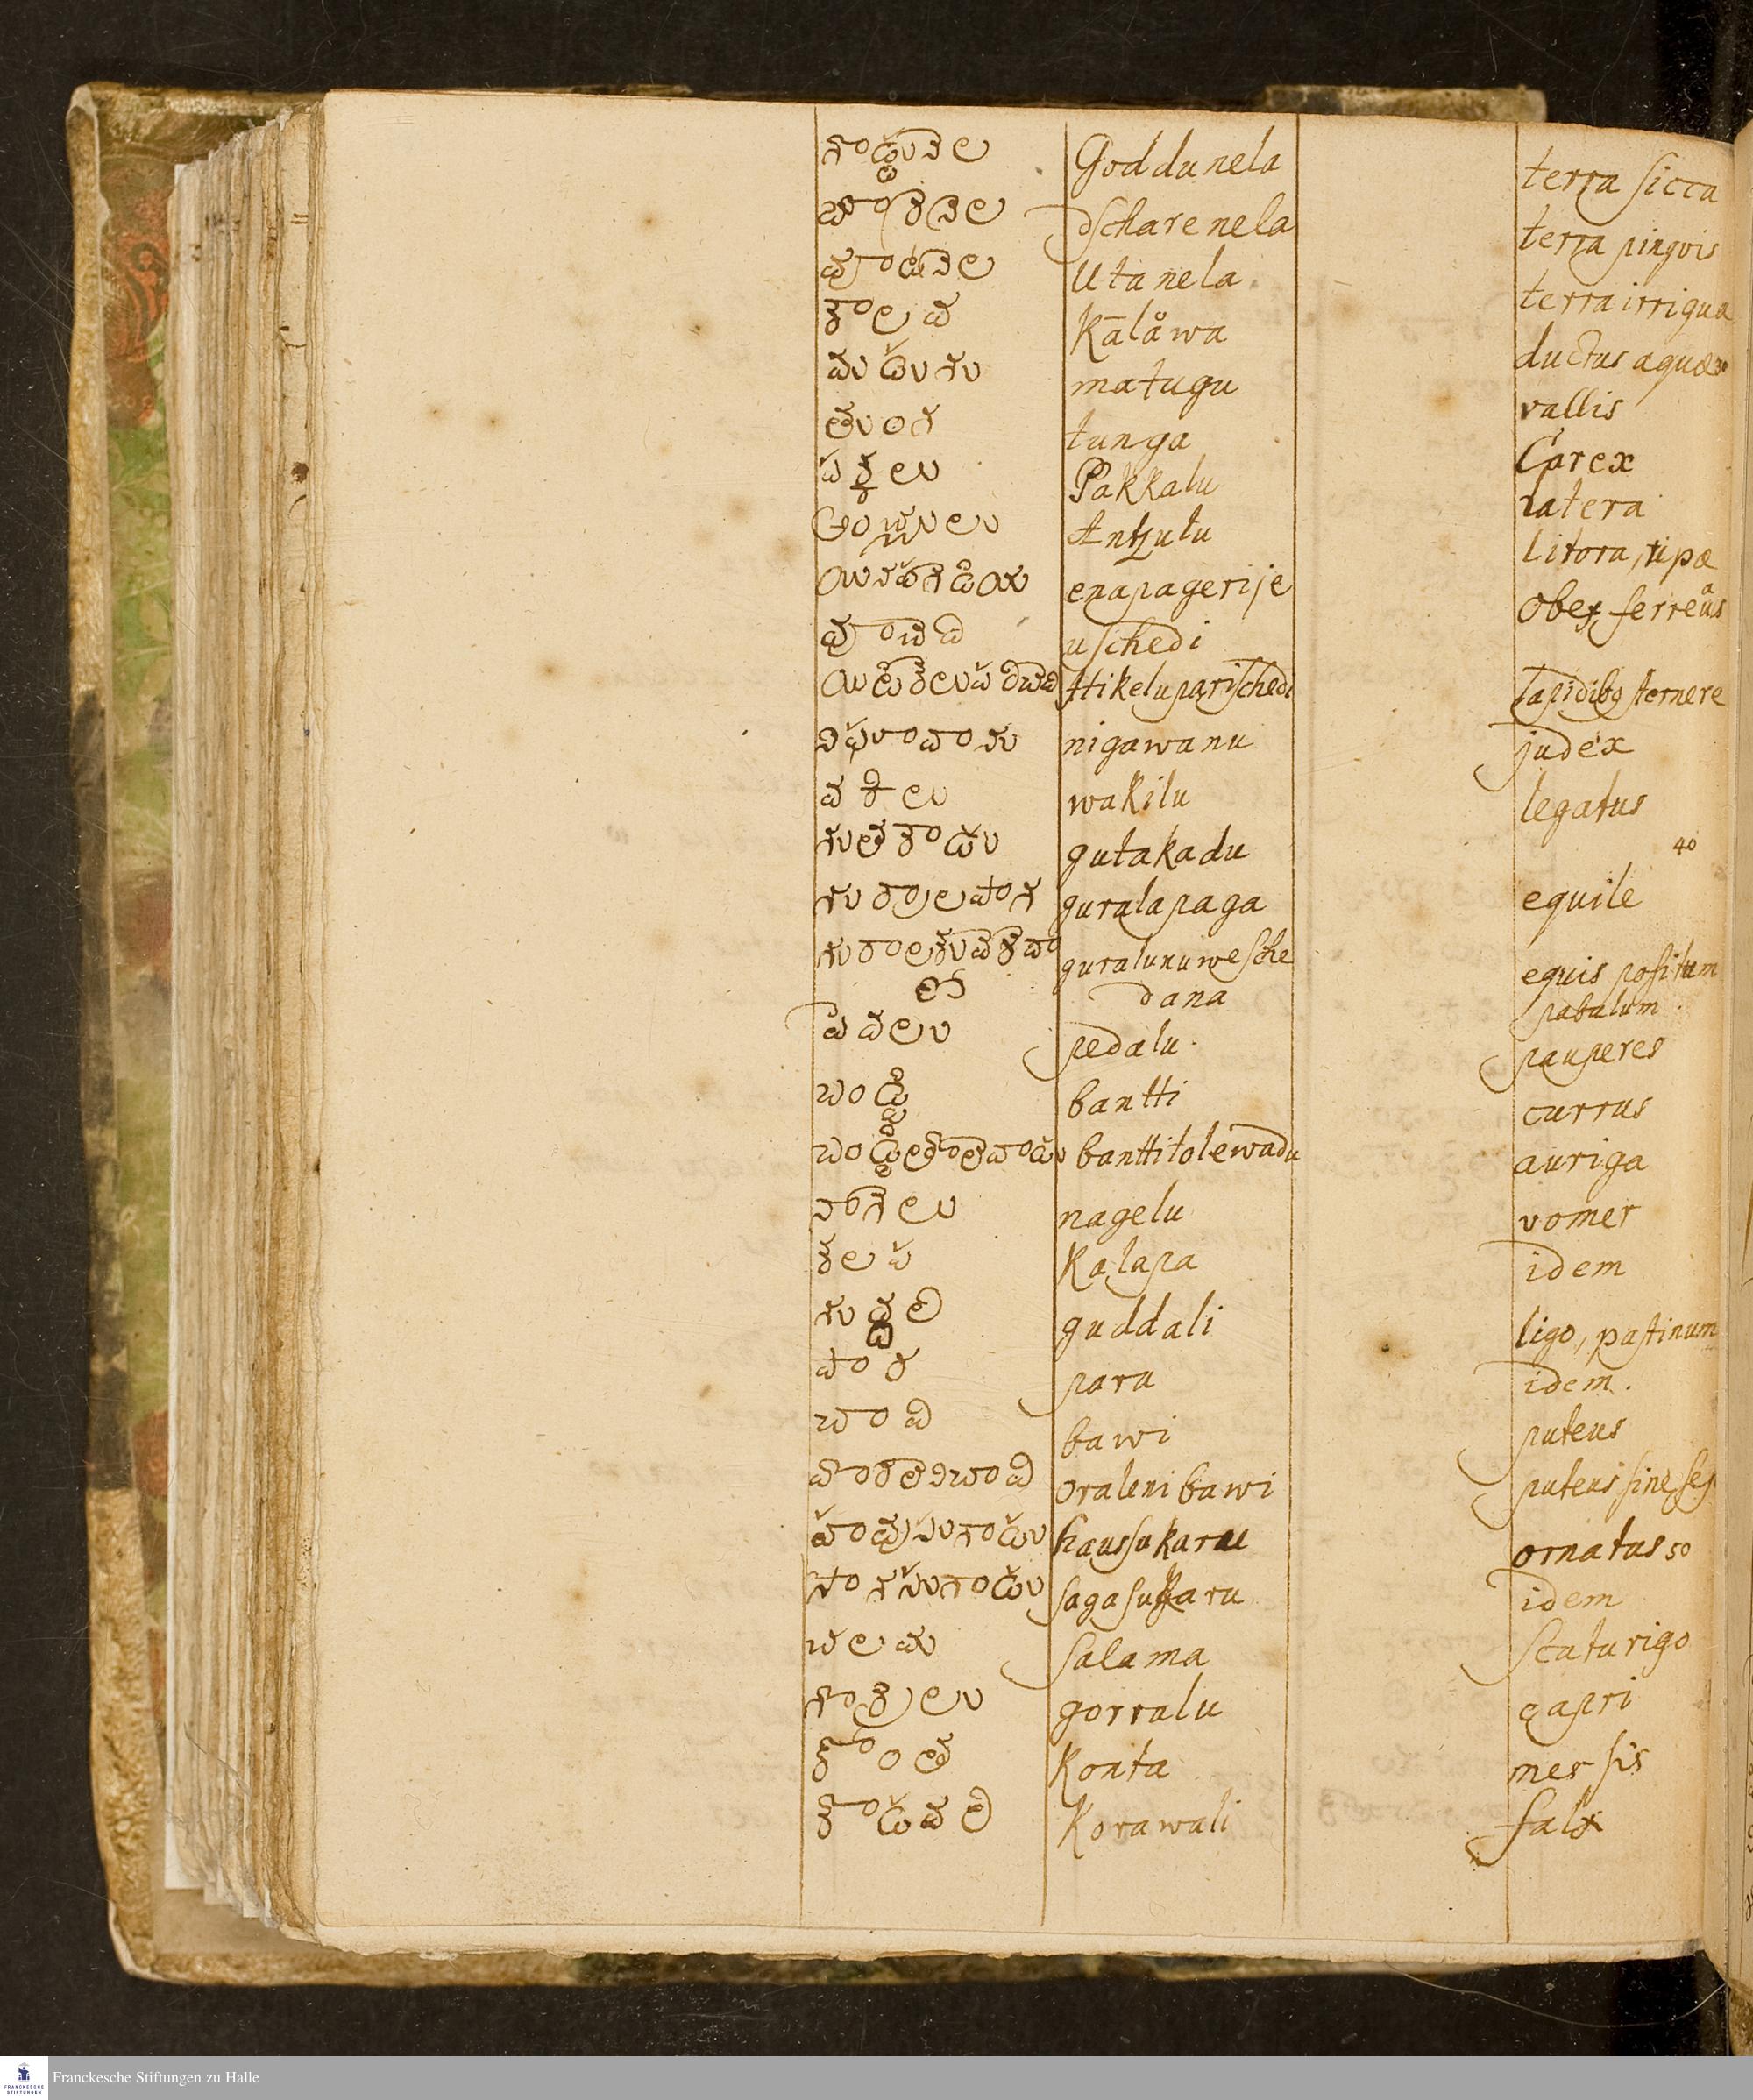 గొడ్డునెల Goddunela terra sicca
dscharenela terra pingvis
Utanela terra irrigua
కాలవ Kālåwa ductus aquæ
మడుగు matugu vallis
తుంగ tunga Carex
పక్కలు Pakkalu latera
అంచులు Antzulu litora, ripæ
enapagerije obex ferreus
uschedi
ittikeluparischedi lapidibg sternere
నియావాను nigawanu judex
వకిలు wakilu legatus
గుతకాడు gutakadu 40
గురాలపాగ guralapaga equile
guralunuwesche equis positum
dana pabulum
పెదలు pedalu pauperes
బండ్డి bantti currus
బండ్డితోలెవాడు banttitolewadu auriga
నాగేలు nagelu vomer
కలప Kalapa idem
గుద్దలి guddali ligo, pastinum
పార para idem.
బావి bawi puteus
oralenibawi puteus sine
haussukarau ornatus 50
సాగసుగాడు sagasukaru idem
చలమ salama scaturigo
గొర్రలు gorralu capri
కోంత Konta messis
కోడవలి Korawali falx
Franckesche Stiftungen zu Halle